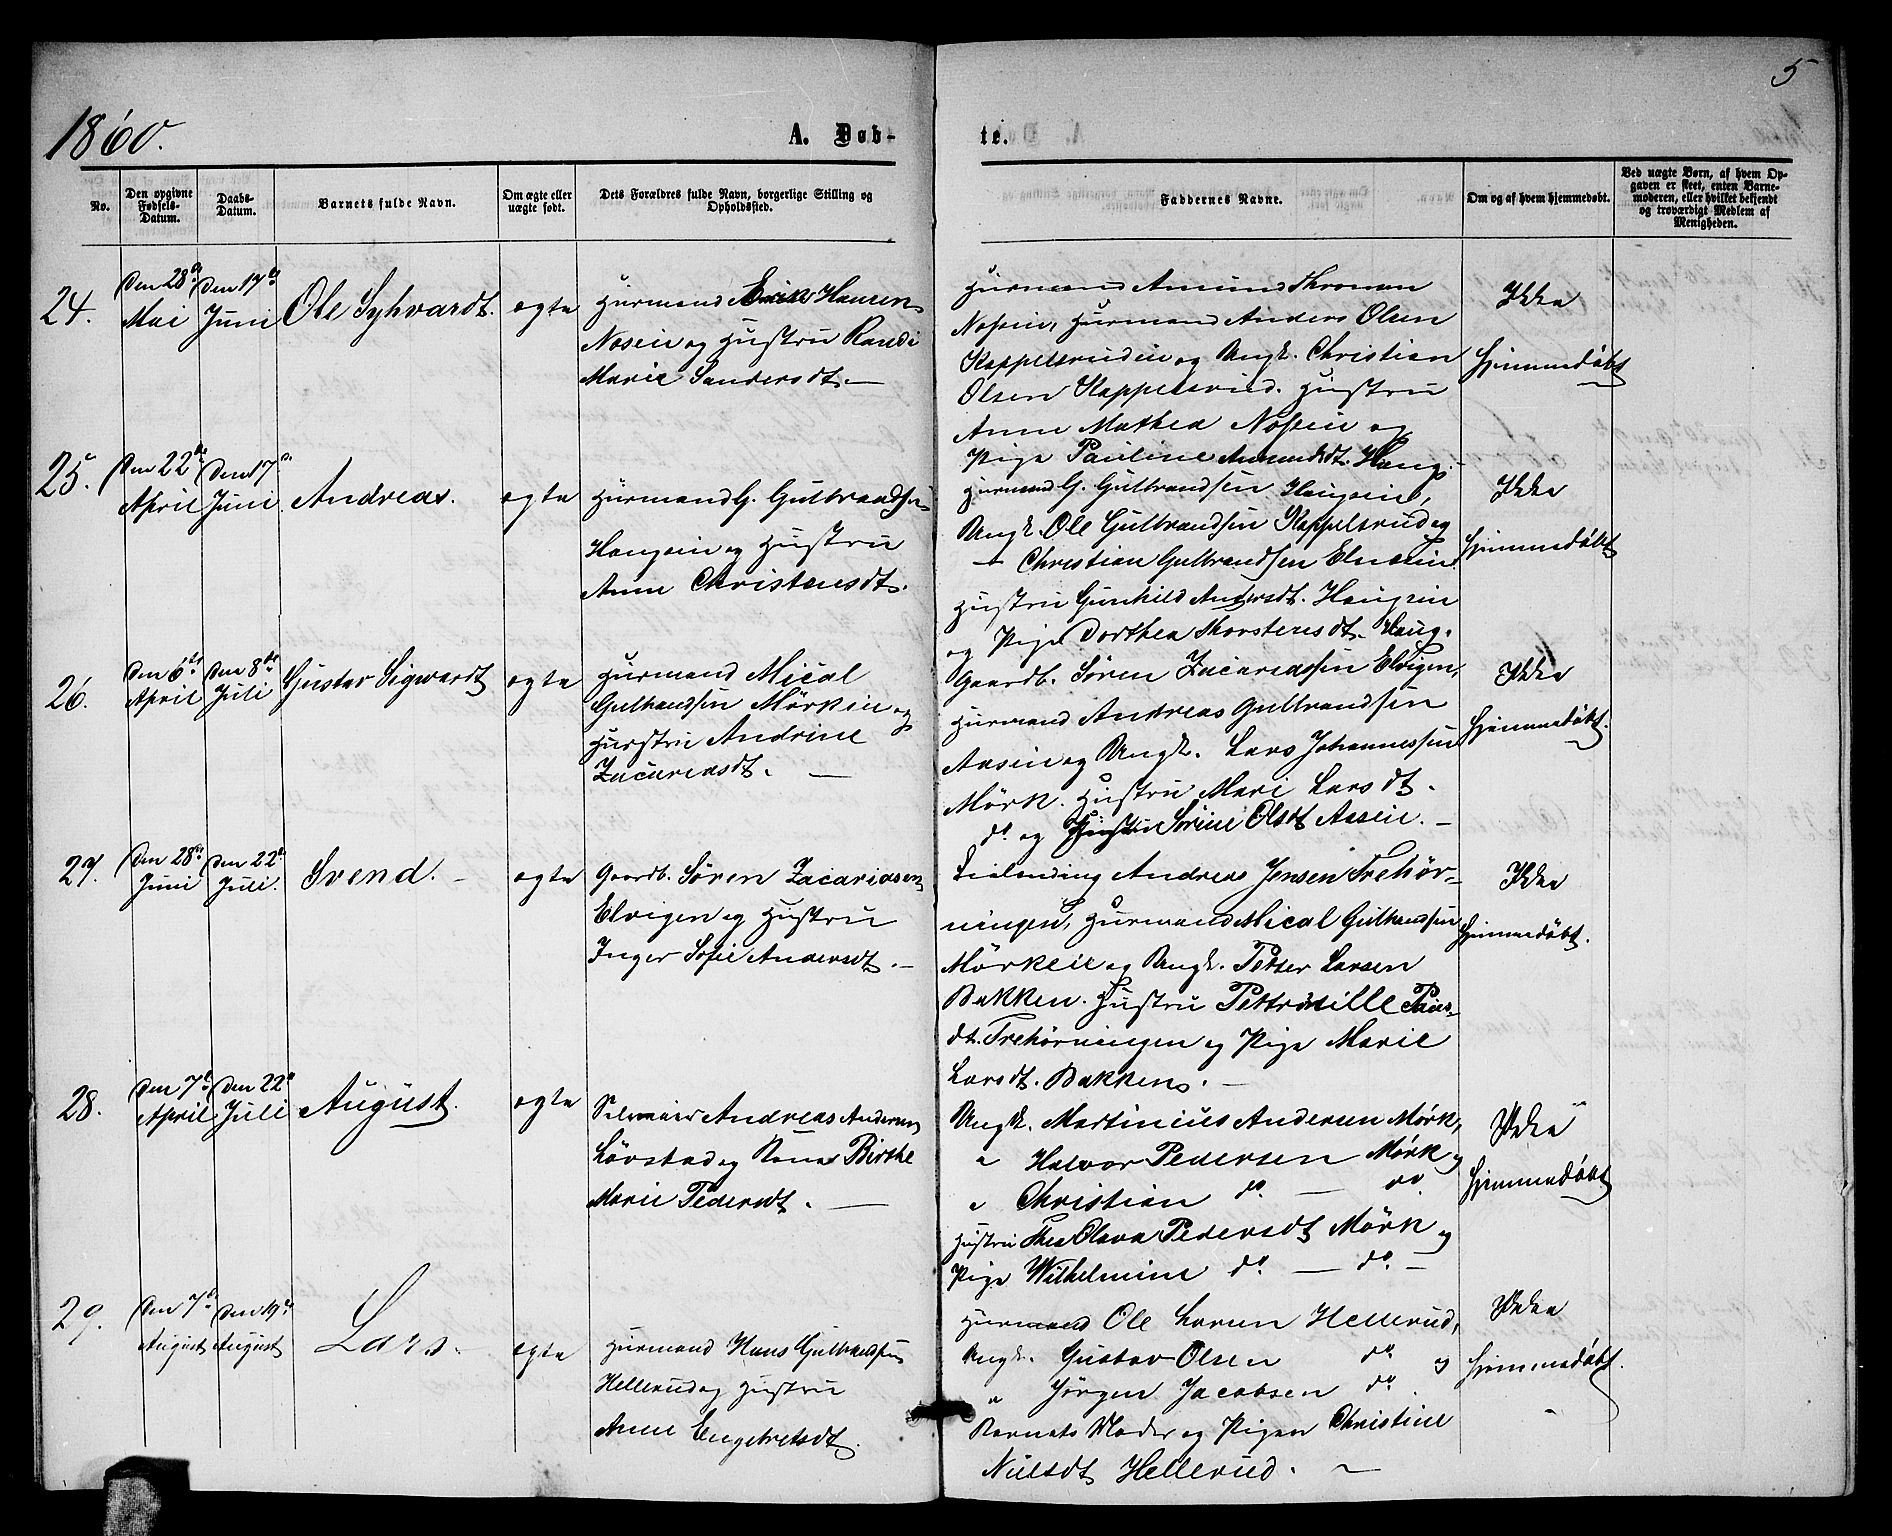 5
1860.
A. Døb-
te.
No.
Den opgivne Fødsels-Datum.
Daabs-Datum.
Barnets fulde Navn.
Om ægte eller uægte født.
Dets Forældres fulde Navn, borgerlige Stilling og Opholdssted.
Faddernes Navne.
Om og af hvem hjemmedøbt.
Ved uægte Børn, af hvem Opgaven er skeet, enten Barnemoderen, eller hvilket bekjendt og troværdigt Medlem af Menigheden.
24.
Den 28de Mai
Den 17de Juni
Ole Syhvardt.
ægte
Huusmand Erik Hansen
Nosein og Hustru Randi
Marie Sandersdt. —
Huusmand Amund Thronsen
Nosein, Huusmand Anders Olsen
Kappelsrudein og Ungk. Christian
Olsen Kappelsrud. Hustru
Anne Mathea Nosein og
Pige Pauline Amundsdt. Haug.
Ikke
hjemmedøbt
25.
Den 22de April
Den 17de Juni
Andreas.
ægte
Huusmand G. Gulbrandsen
Haugein og Hustru
Anne Christensdt.
Huusmand G. Gulbrandsen Haugein,
Ungk. Ole Gulbrandsen Kappelsrud og
— Christian Gulbrandsen Elnæsin
Hustru Gunhild Andersdt. Haugein
og Pige Dorthea Thorstensdt. Haug.
Ikke
hjemmedøbt
26.
Den 6te April
Den 8de Juli
Gustav Sigwardt
ægte
Huusmand Mical
Gulbrandsen Mörkein og
Hustru Andrine
Zacariasdt. —
Gaardb. Sören Zacariassen Elvigen,
Huusmand Andreas Gulbrandsen
Aasein og Ungk. Lars Johannessen
Mörk. Hustru Mari Larsdt.
do og Hustru Sörine Olsdt Aasein. —
Ikke
hjemmedøbt.
27.
Den 28de Juni
Den 22de Juli.
Svend. —
ægte
Gaardb. Sören Zacariasen
Elvigen og Hustru
Inger Sofie Andersdt. —
Andreas Jensen Trehör-
ningen, Huusmand Mical Gulbrandsen
Mörkein og Ungk. Petter Larsen
Bakken. Hustru Petternille
dt. Trehörningen og Pige Marie
Larsdt. Bakken. —
Ikke
hjemmedøbt.
28.
Den 7de April
Den 22de Juli
August.
ægte
Andreas Andersen
Lövstad og Kone Birthe
Marie Pedersdt. —
Ungk. Martinius Andersen Mörk,
" Halvor Pedersen Mörk og
" Christian do. — do.
Hustru Thea Olava Pedersdt Mörk og
Pige Wilhelmine do. — do. —
Ikke
hjemmedøbt
29.
Den 7de August
Den 19de August
Lars.
ægte
Huusmand Hans Gulbrandsen
Hellerud og Hustru
Anne Engebretsdt.
Huusmand Ole Larsen Hellerud,
Ungk. Gustav Olsen do og
" Jörgen Jacobsen do.
Barnets Moder og Pigen Christine
Nielsdt Hellerud. —
Ikke
hjemmedøbt.